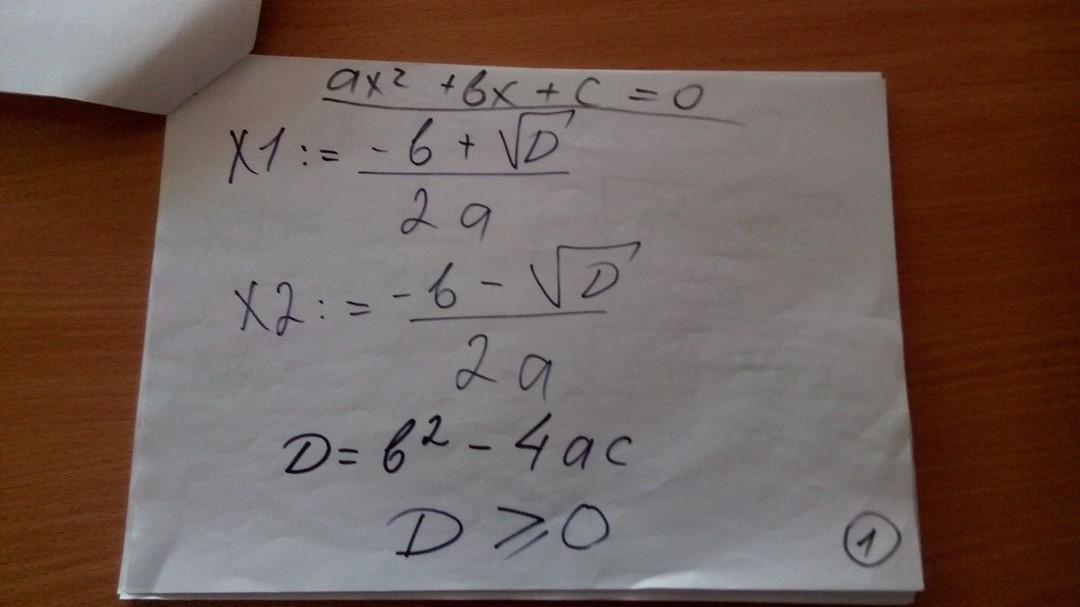 ax² + bx + c = 0
X1 := (-b + √D) / 2a
X2 := (-b - √D) / 2a
D = b² - 4ac
D ⩾ 0
1